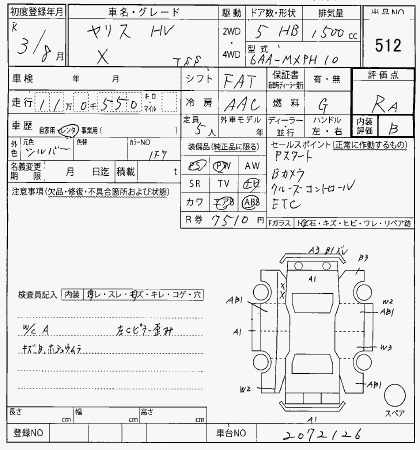 初度登録年月 車名・グレード 駆動 ドア数・形状 排気量 出品NO
R 3/8月 ヤリス HV 2WD 5 HB 1500cc 512
X TSS ・4WD 型式 6AA-MXPH10
車検 年 月 シフト FAT 保証書 有・無 評価点
走行 11万0千550 キロ・マイル 冷房 AAC 燃料 G RA
車歴 自家用 レンタ 事業用( ) 定員 5人 外車モデル 年 ディーラー・並行 ハンドル 左・右 内装評価 B
外色 元色 シルバー 色替 カラーNO 1F7 装備品(純正品に限る) セールスポイント(正常に作動するもの)
名義変更期限 月 日迄 積載 t PS PW AW
注意事項(欠品・修復・不具合箇所および状態) SR TV
Bカメラ
クルーズコントロール
カワ エアB ABS ETC
R券 7510円 Fガラス 石・キズ・ヒビ・ワレ・リペア跡
A3 B1
A1 B3
検査員記入 内装 スレ・キズ・キレ・コゲ・穴
AB1 W2
W/C A 左Cピラー歪み A1 AB1
W3
W2 AB1
長さ cm 幅 cm 高さ cm A1 スペア
登録NO 車台NO 2072126